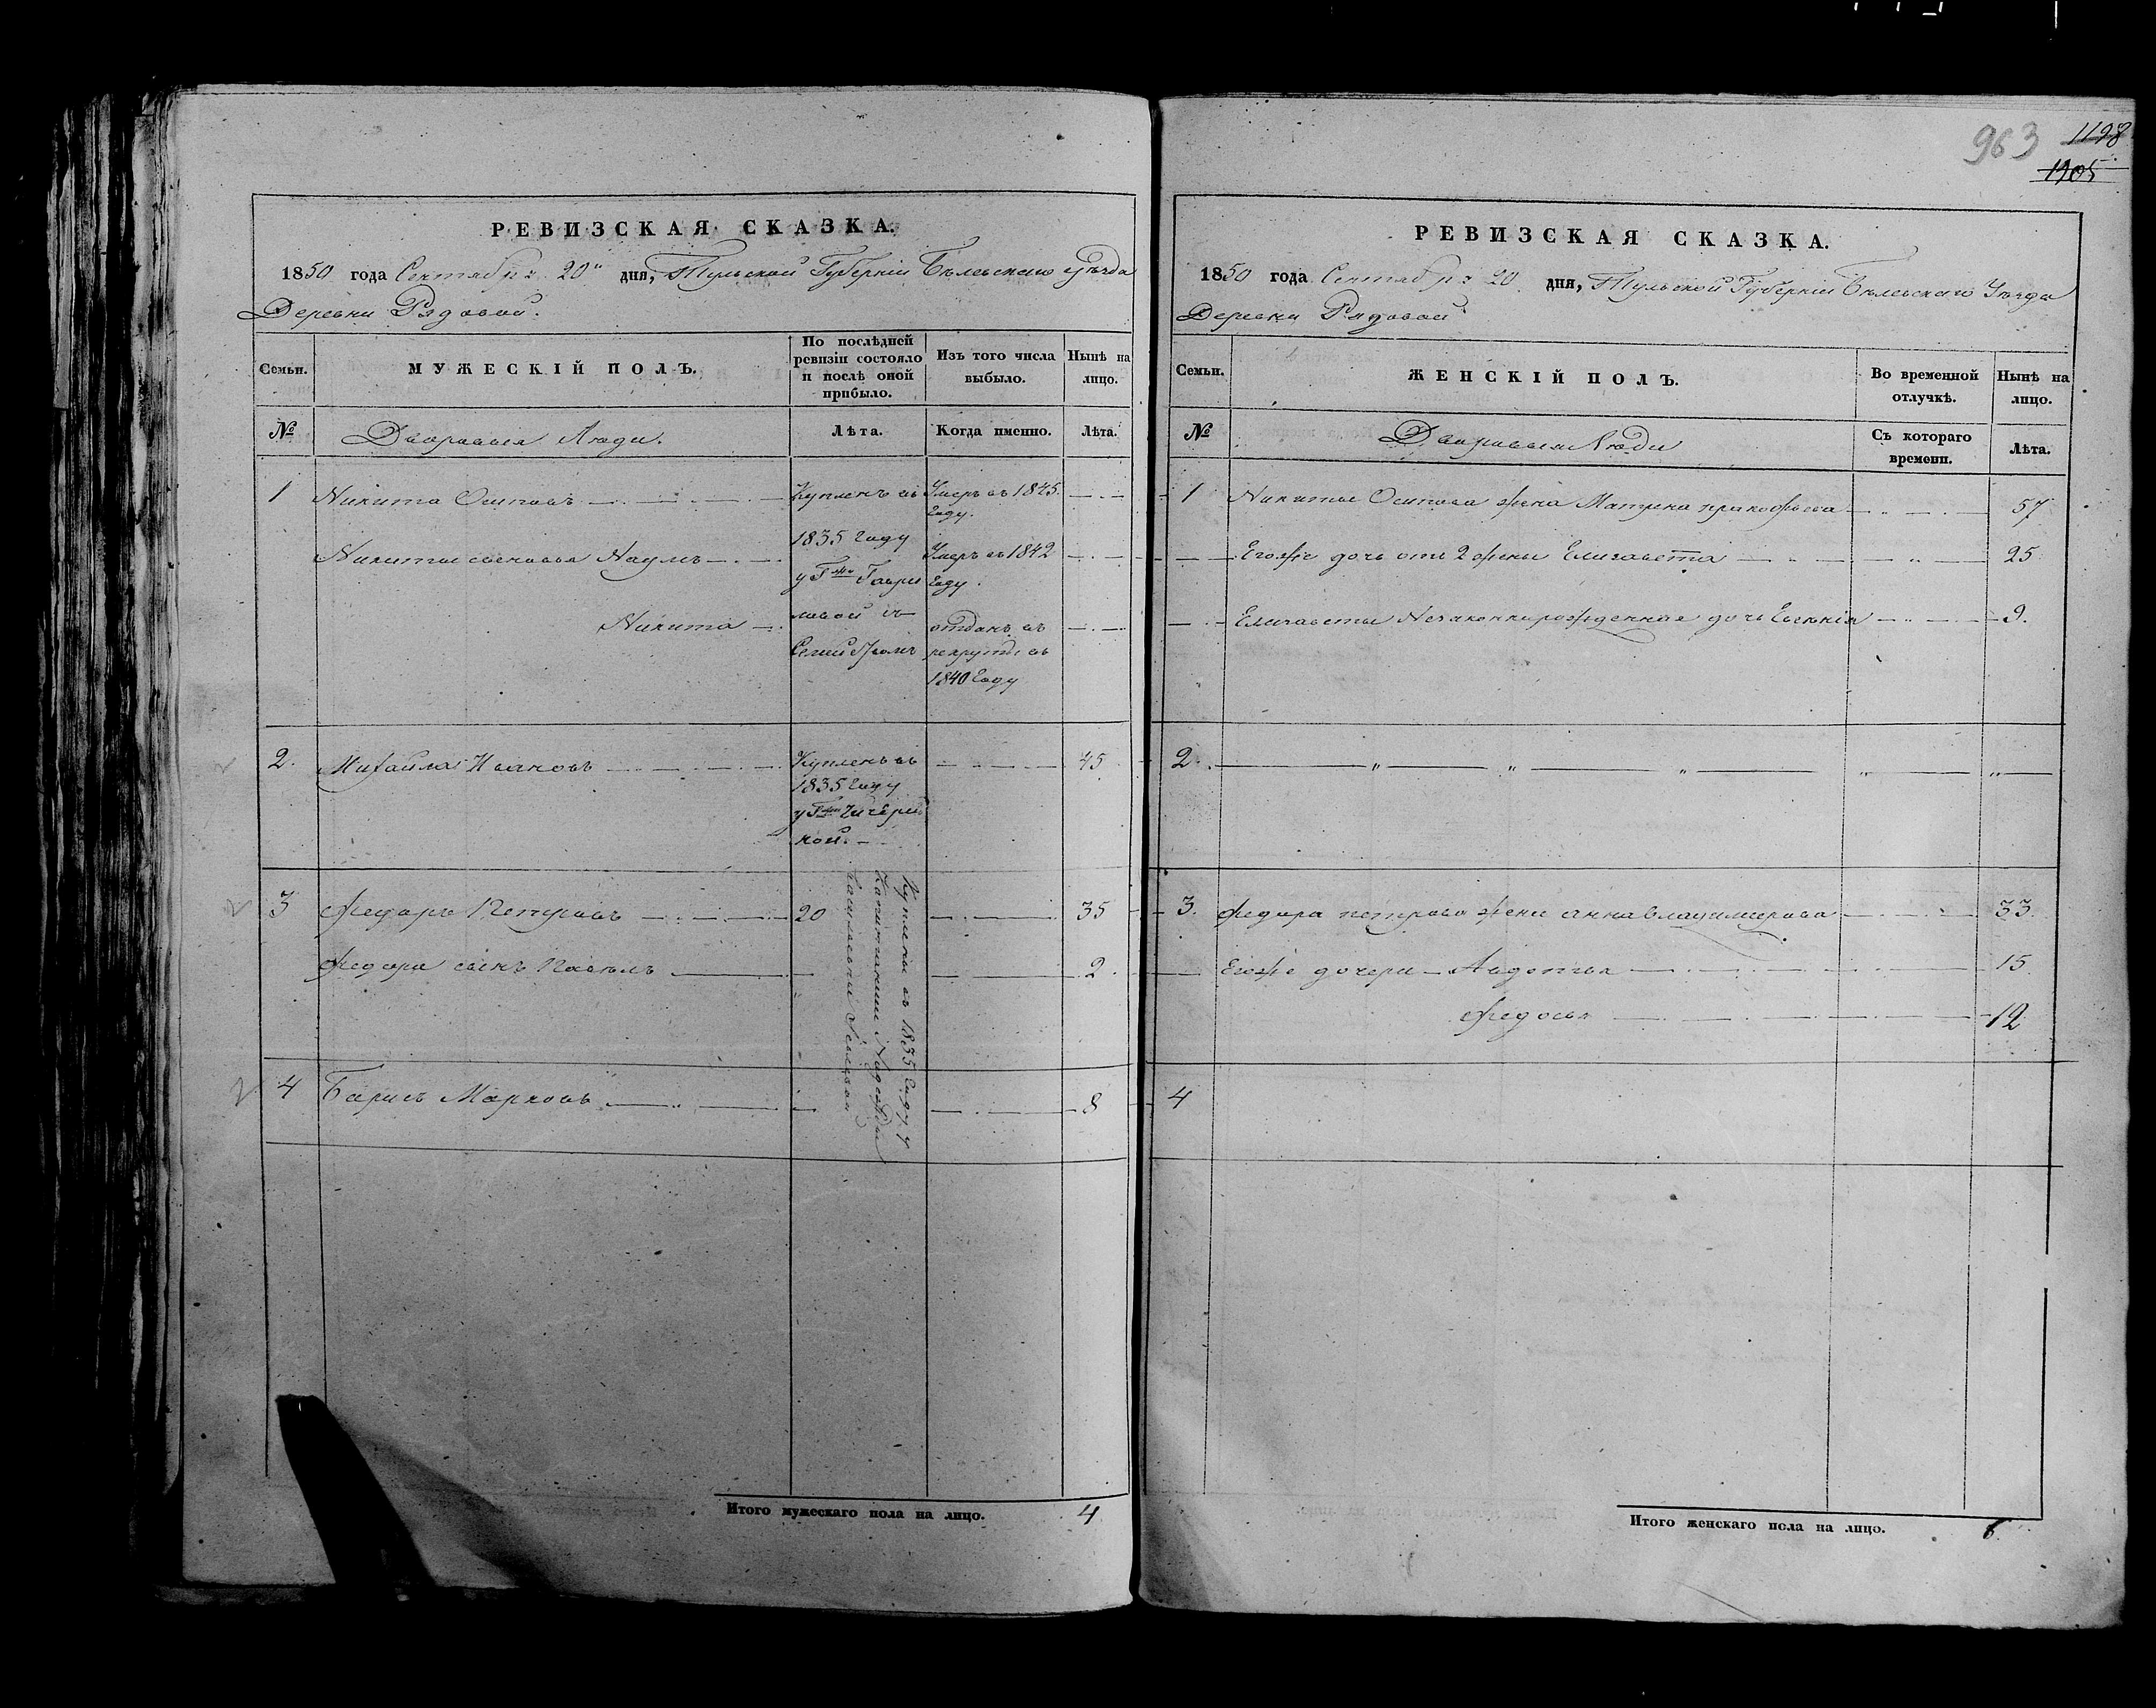 963 1198
1905
РЕВИЗСКАЯ СКАЗКА.
1850 года Сентября 20 дня, Тульской Губерніи Бѣлевскаго уѣзда
Деревни Рядовой.
Семьи. МУЖЕСКІЙ ПОЛЪ. По послѣдней ревизіи состояло и послѣ оной прибыло. Изъ того числа выбыло. Нынѣ на лицо.
№ Дворовыя Люди. Лѣта. Когда именно. Лѣта.
1 Никита Осиповъ Купленъ въ Умеръ въ 1845
году.
1835 году
Никиты сыновья Наумъ Умеръ въ 1842
у Гжи Гаври году.
Никита ловой съ отданъ въ
Семействомъ рекруты въ
1840 году
2. Михайла Ивановъ Купленъ въ 45
1835 году
у Гжи Чичери
ной.
3 Федоръ Петровъ 20 35
Федора сынъ Павелъ 2
Куплены въ 1835 году у
Капитанши Надежды
Васильевны
4 Борисъ Марковъ 8
Итого мужескаго пола на лицо. 4
РЕВИЗСКАЯ СКАЗКА.
1850 года Сентября 20 дня, Тульской Губерніи Бѣлевскаго Уѣзда
Деревни Рядовой
Семьи. ЖЕНСКІЙ ПОЛЪ. Во временной отлучкѣ. Нынѣ на лицо.
№ Дворовыя Люди Съ котораго времени. Лѣта.
1 Никиты Осипова жена Матрена прокофьева 57
Егоже дочь отъ 2 жены Елизавета 25
Елизаветы Незаконнорожденная дочь Евгенія 9.
2. " " " " "
3. Федора петрова жена анна владимирова 33
Егоже дочери Авдотья 15
Федосья 12
4
Итого женскаго пола на лицо. 6.